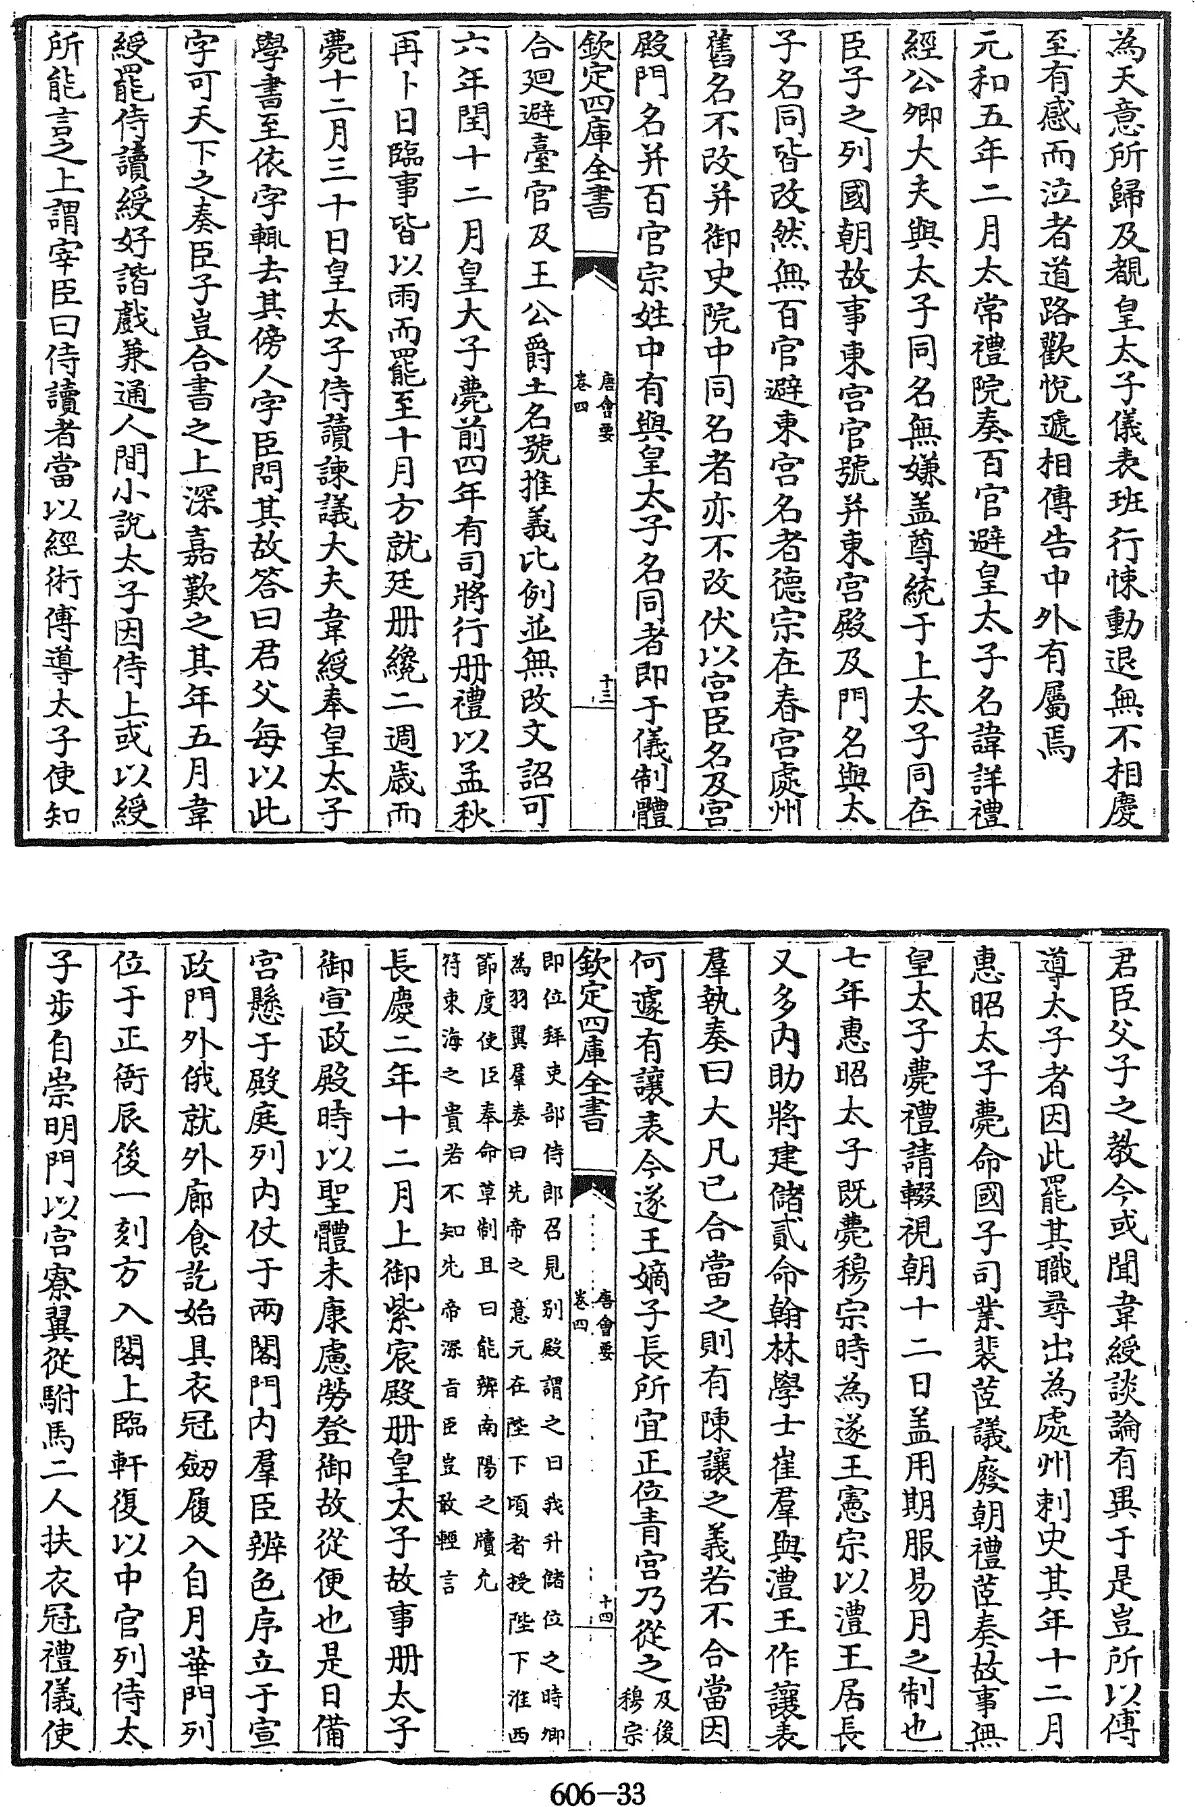 為天意所歸及覩皇太子儀表班行悚動退無不相慶
至有感而泣者道路歡悅遞相傳告中外有屬焉
元和五年二月太常禮院奏百官避皇太子名諱詳禮
經公卿大夫與太子同名無嫌盖尊統于上太子同在
臣子之列國朝故事東宮官號并東宮殿及門名與太
子名同皆改然無百官避東宮名者德宗在春宮處州
舊名不改并御史院中同名者亦不改伏以宮臣名及宮
殿門名并百官宗姓中有與皇太子名同者即于儀制體
欽定四庫全書
唐會要
卷四
十三
合廻避臺官及王公爵土名號推義比例並無改文詔可
六年閏十二月皇大子薨前四年有司將行册禮以孟秋
再卜日臨事皆以雨而罷至十月方就廷册纔二週歲而
薨十二月三十日皇太子侍讀諫議大夫韋綬奉皇太子
學書至依字輒去其傍人字臣問其故答曰君父每以此
字可天下之奏臣子豈合書之上深嘉歎之其年五月韋
綬罷侍讀綬好諧戲兼通人間小說太子因侍上或以綬
所能言之上謂宰臣曰侍讀者當以經術傅導太子使知
君臣父子之教今或聞韋綬談論有異于是豈所以傅
導太子者因此罷其職尋出為處州刺史其年十二月
惠昭太子薨命國子司業裴茝議廢朝禮茝奏故事無
皇太子薨禮請輟視朝十二日盖用期服易月之制也
七年惠昭太子既薨穆宗時為遂王憲宗以澧王居長
又多内助將建儲貳命翰林學士崔羣與澧王作讓表
羣執奏曰大凡已合當之則有陳讓之義若不合當因
何遽有讓表今遂王嫡子長所宜正位青宮乃從之及後
穆宗
欽定四庫全書
唐會要
卷四
十四
即位拜吏部侍郎召見别殿謂之曰我升儲位之時卿
為羽翼羣奏曰先帝之意元在陛下頃者授陛下淮西
節度使臣奉命草制且曰能辨南陽之牘允
符東海之貴若不知先帝深旨臣豈敢輕言
長慶二年十二月上御紫宸殿册皇太子故事册太子
御宣政殿時以聖體未康慮勞登御故從便也是日備
宮懸于殿庭列内仗于兩閣門内羣臣辨色序立于宣
政門外俄就外廊食訖始具衣冠劒履入自月華門列
位于正衙辰後一刻方入閣上臨軒復以中官列侍太
子步自崇明門以宮寮翼從駙馬二人扶衣冠禮儀使
606-33